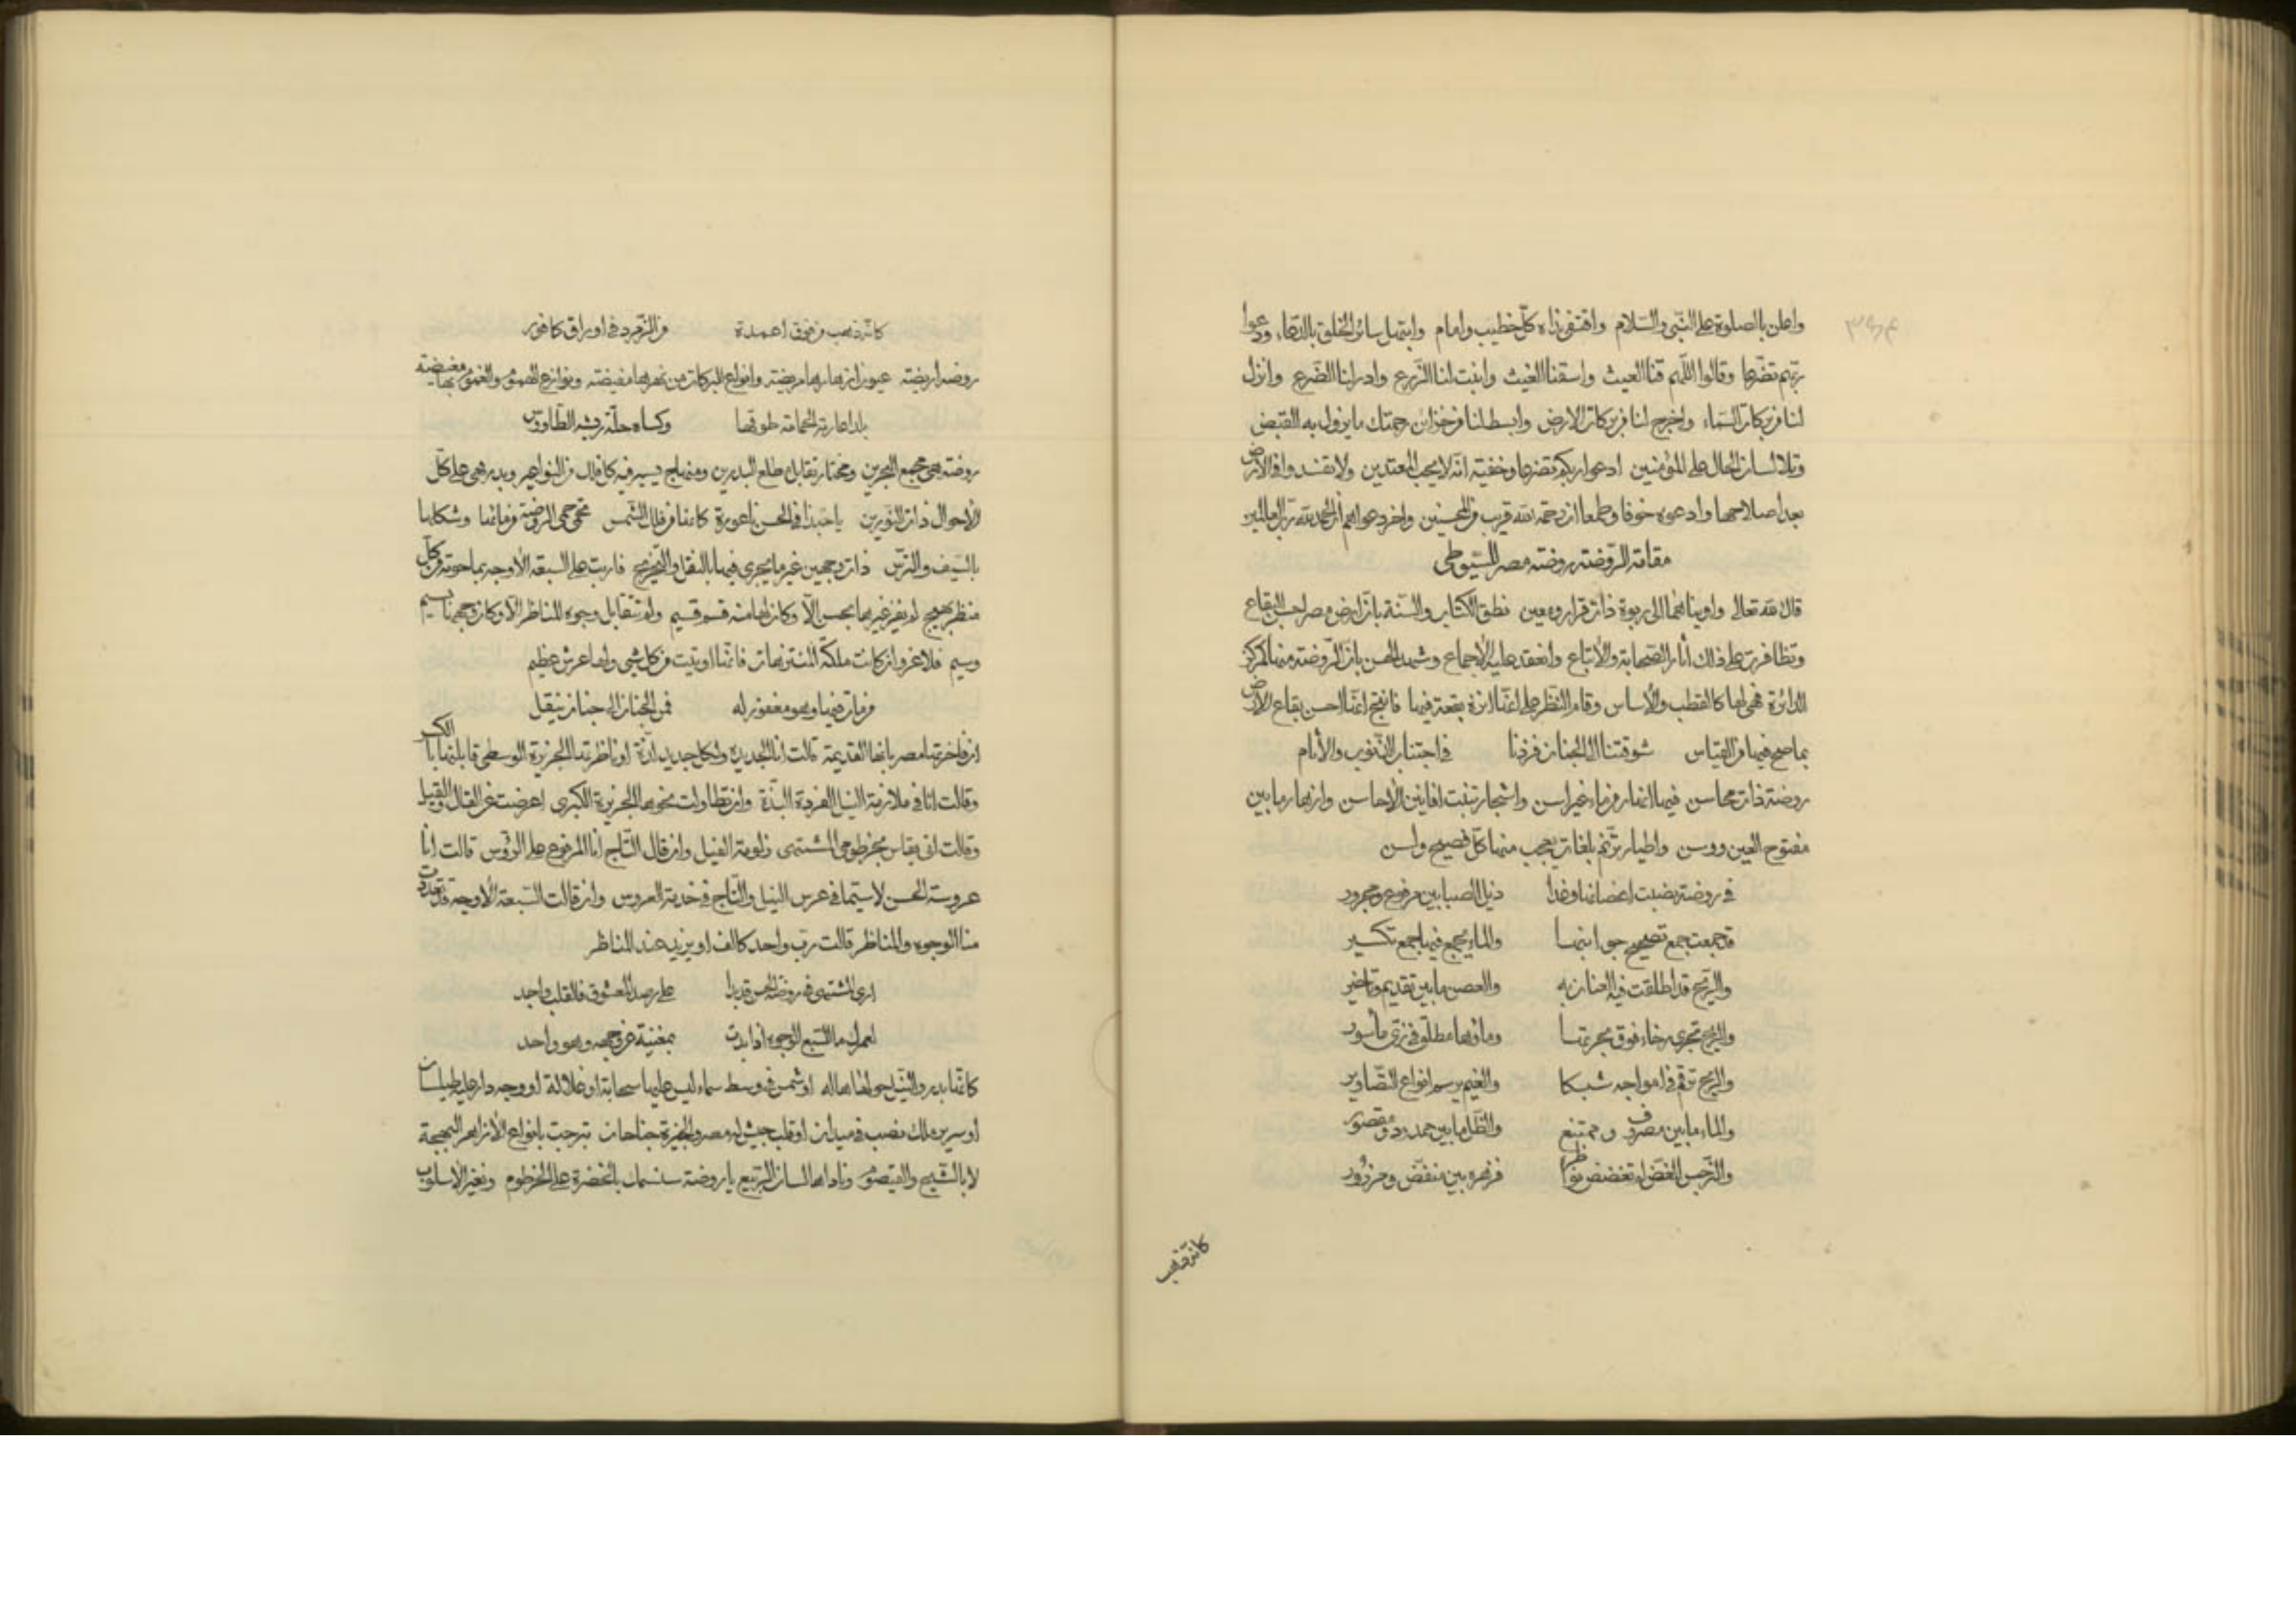 واعلن بالصلوة على النبي والسلام واقتفى ذاه كل خطيب وامام وابتهل سائر الخلق بالدعاء ودعوا
ربهم تضرعا وقالوا اللهم قنا العيث واسقنا الغيث وانبت لنا الزرع وادر لنا الضرع وانزل
لنا من بركات السماء واخرج لنا من بركات الارض وابسط لنا من خزائن رحمتك ما يزول به القبض
وتلا لسان الحال على المؤمنين ادعوا ربكم تضرعا وخفية انه لا يحب المعتدين ولا تفسدوا في الارض
بعد اصلاحها وادعوه خوفا وطمعا ان رحمة الله قريب من المحسنين واخر دعواهم ان الحمد لله رب العالمين
مقامة الروضة روضة مصر للسيوطي
قال الله تعالى واويناهما الى ربوة ذات قرار ومعين نطق الكتاب والسنة بان ارض مصر احب البقاع
وتظافرت على ذلك اثار الصحابة والاتباع وانعقد عليه الاجماع وشهد الحسن بان الروضة منها المركز
الدائرة فهي لها كالقطب والاساس وقام النظر على انها انزه بقعة فيها فانتج انها احسن بقاع الارض
بما صح فيها من القياس شوقتنا الى الجنان فزدنا في اجتناب الذنوب والآثام
روضة ذات محاسن فيها انهار من ماء غير اسن واشجار تنبت افانين الاحاسن وازهار ما بين
مفتوح العين ووسن واطيار ترنم بلغات يعجب منها كل فصيح ولسن
في روضة نصبت اغصانها وغدا ذيل الصبا بين مرفوع ومجرور
قد جمعت جمع تصحيح جوانبها والماء يجمع فيها جمع تكسير
والريح قد اطلقت فيه العنان به والغصن ما بين تقديم وتاخير
والريح تجري رخاء فوق بحرتها وماؤها مطلق في زي مأسور
والريح ترقم في امواجه شبكا والغيم يرسم انواع التصاوير
والماء ما بين مصروف وممتنع والظل ما بين ممدود ومقصور
والنرجس الغض لم تغضض نواظرا فزهره بين منفض ومزرور
كانه ذهب
كانه ذهب من فوق اعمدة من الزمرد في اوراق كافور
روضة اريضة عيون ازهارها مريضة وانواع البركات من نهرها مفيضة ونوازع الهموم والغموم بها مغيضة
بلد اعارته الحمامة طوقها وكساه حلة ريشه الطاووس
روضة هي مجمع البحرين ومختار تقابل مطلع البدرين ومنهاج يسير فيه كل فلك من النواعير ويدير هي على كل
الاحوال ذات النورين يا حبذا في الحسن ناعورة كانها من فلك الشمس تحمي حمى الروضة من مائها وشكلها
بالسيف والترس ذات وجهين غير ما يجرى فيها بالنقل والتخريج فاربت على السبعة الاوجه بما حوته من كل
منظر بهيج لم يفز غيرها بحسن الا وكان لها منه قسم قسيم ولم تتقابل وجوه المناظر الا وكان وجهها باسيم
وسيم فلا غرو ان كانت ملكة المنتزهات فانها اوتيت من كل شي ولها عرش عظيم
من مات فيها وهو مغفور له فمن الجنان الى جنان ينقل
ان فاخرتها مصر بانها القديمة قالت انا الجديدة ولكل جديد لذة او ناظرتها الجزيرة الوسطى قابلتها باا الكبر
وقالت انا في ملازمة النيل الفردة البذة وان تطاولت نحوها الجزيرة الكبرى اعرضت عن القال والقيل
وقالت انى يقاس بخرطومي المشتهى زلومة الفيل وان قال التاج انا المرفوع على الرؤس قالت انا
عروسة الحسن لا سيما في عرس النيل والتاج في خدمة العروس وان قالت السبعة الاوجه قد تعددت
منا الوجوه والمناظر قالت رب واحد كالف او يزيد عند المناظر
ارى المشتهى في روضة الحسن قد بدا على رصد المعشوق فالقلب واجد
لعمرك ما السبع الوجوه اذا بدت بمغنية عن وجهه وهو واحد
كانها بدر والنيل حولها هاله او شمس في وسط سماء ليس عليها سحابة او غلالة او وجه دار عليه طيلسان
او سرير ملك نصب في ميدان او قلب جيش له مصر والجيزة جناحان تبرجت بانواع الازاهر البهيجة
لا بالشيح والقيصوم وناداها لسان الربيع يا روضة سنسمك بالخضرة على الخرطوم ونغير الاسلوب